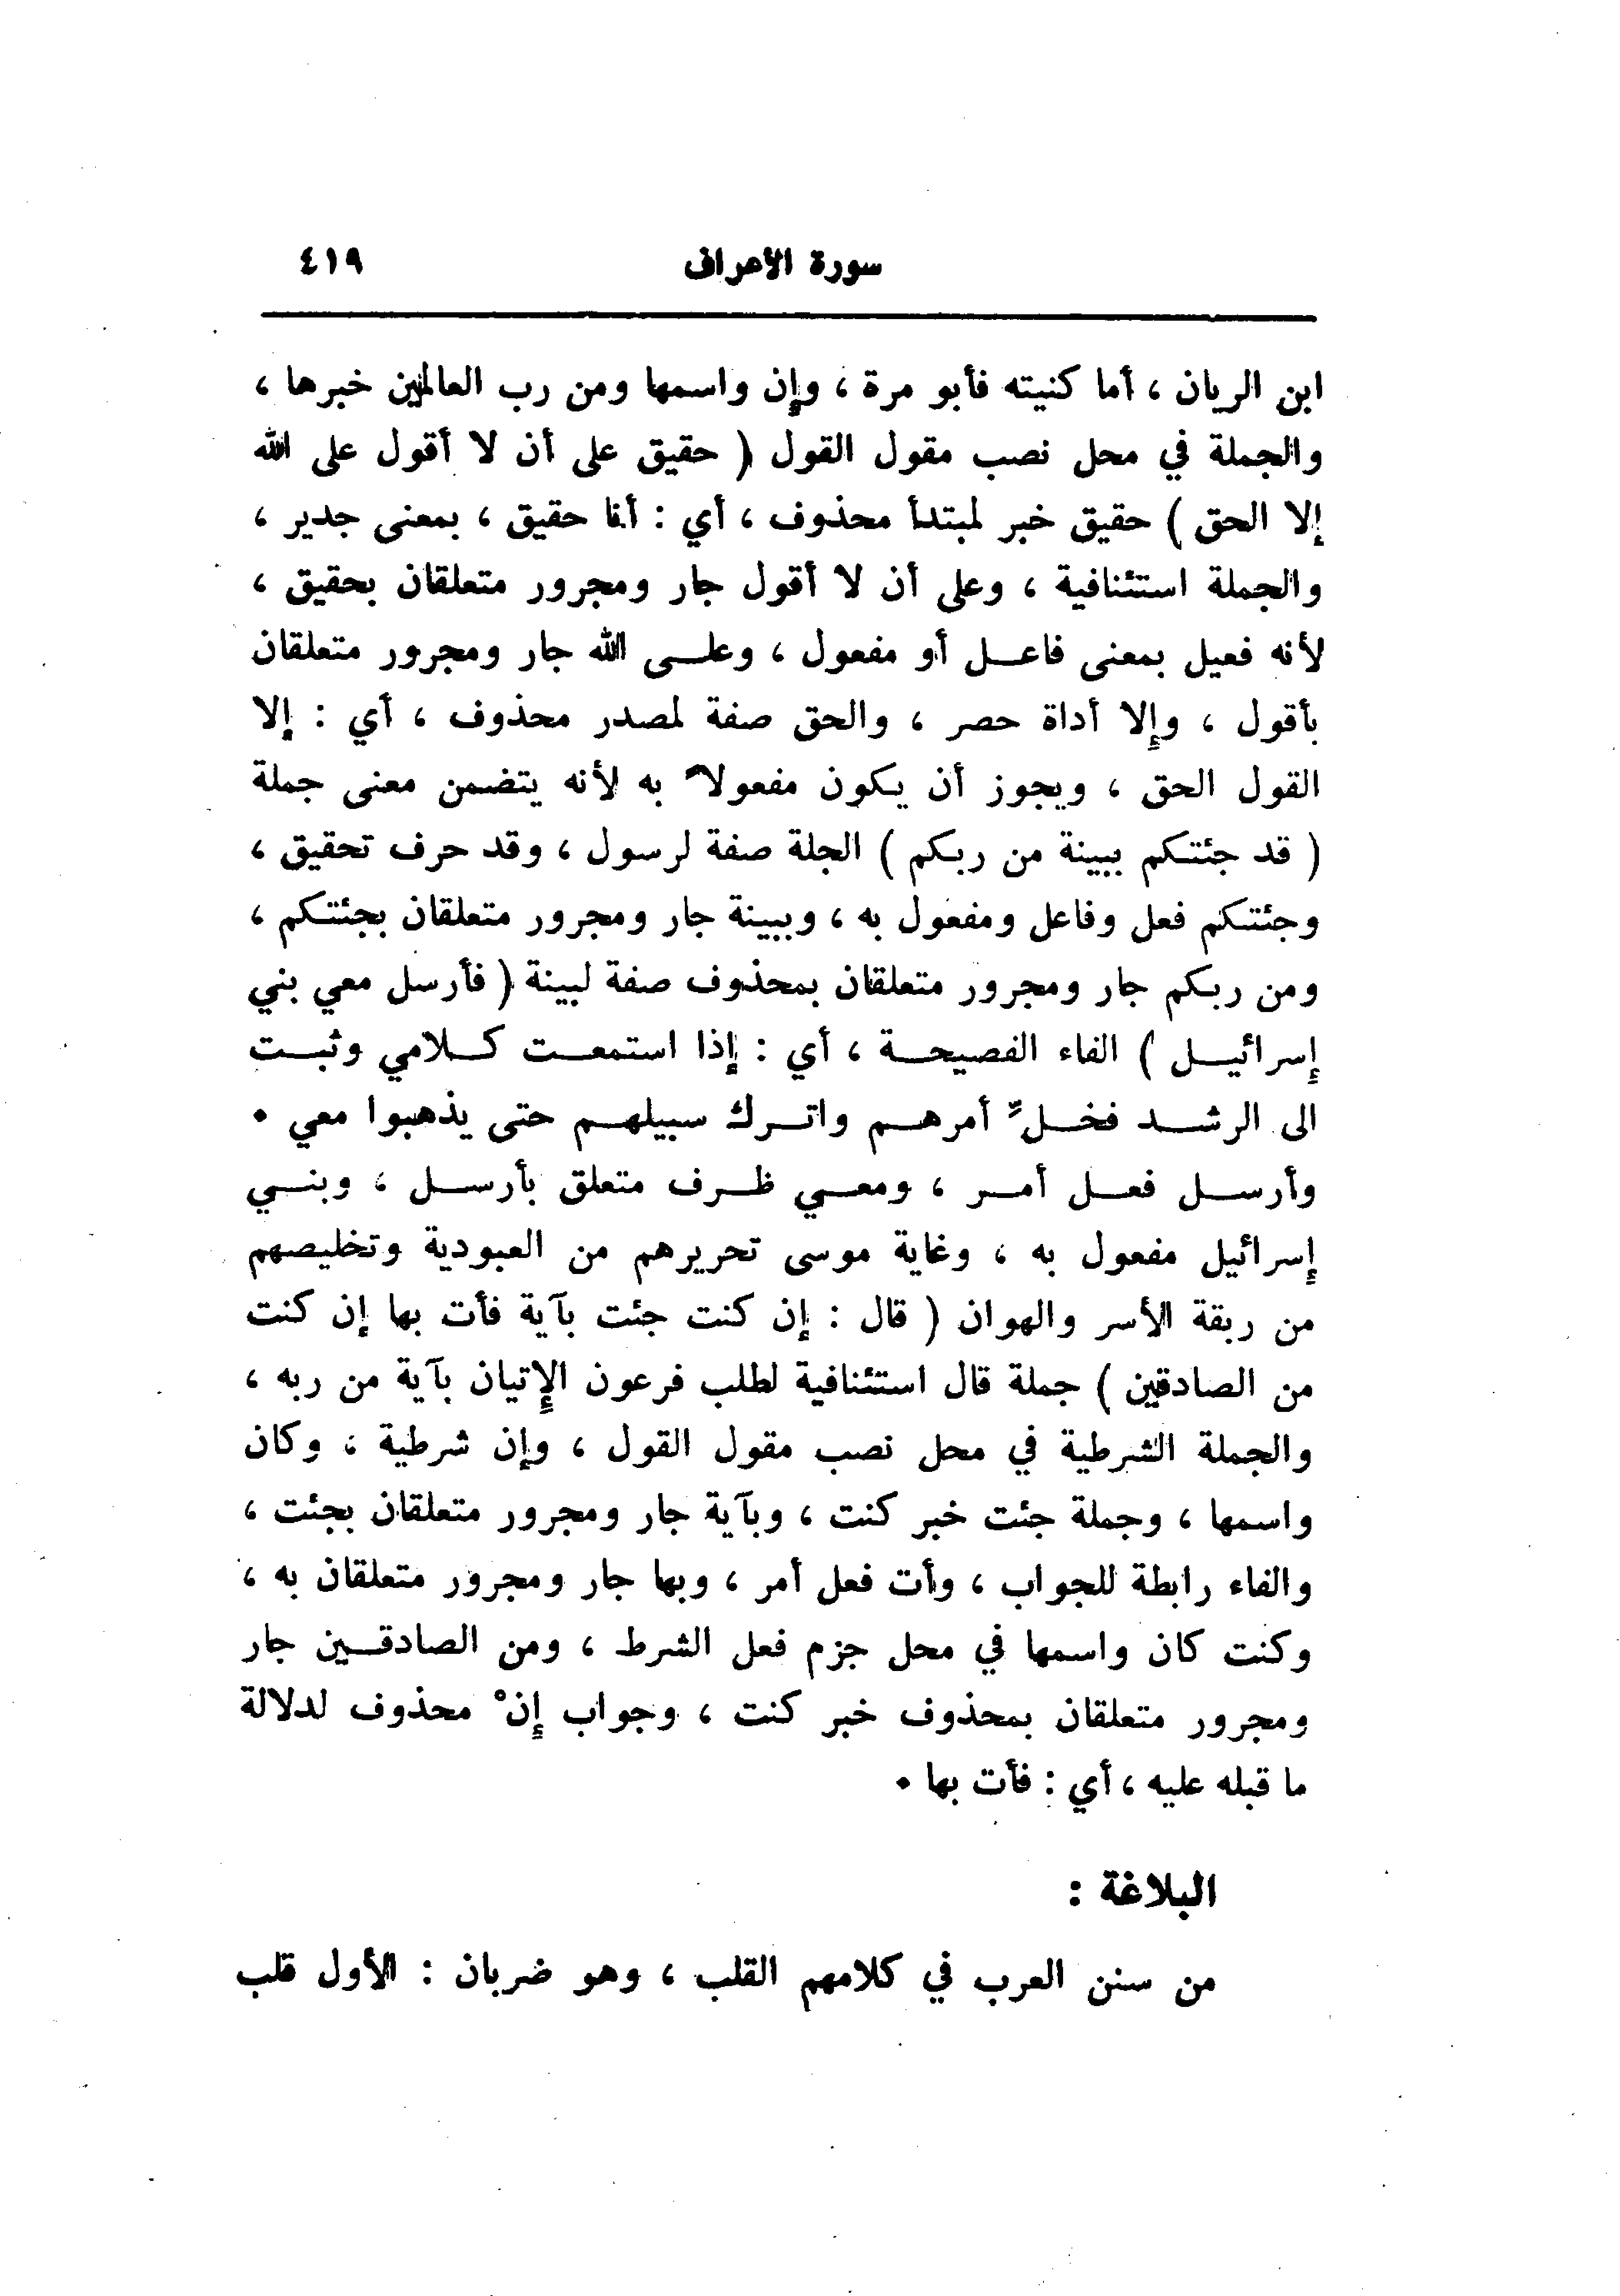 سورة الأعراف ٤١٩
ابن الريان ، أما كنيته فأبو مرة ، وإن واسمها ومن رب العالمين خبرها ،
والجملة في محل نصب مقول القول ( حقيق على أن لا أقول على الله
إلا الحق ) حقيق خبر لمبتدأ محذوف ، أي : أنا حقيق ، بمعنى جدير ،
والجملة استئنافية ، وعلى أن لا أقول جار ومجرور متعلقان بحقيق ،
لأنه فعيل بمعنى فاعل أو مفعول ، وعلى الله جار ومجرور متعلقان
بأقول ، وإلا أداة حصر ، والحق صفة لمصدر محذوف ، أي : إلا
القول الحق ، ويجوز أن يكون مفعولاً به لأنه يتضمن معنى جملة
( قد جئتكم ببينة من ربكم ) الجلة صفة لرسول ، وقد حرف تحقيق ،
وجئتكم فعل وفاعل ومفعول به ، وببينة جار ومجرور متعلقان بجئتكم ،
ومن ربكم جار ومجرور متعلقان بمحذوف صفة لبينة ( فأرسل معي بني
إسرائيل ) الفاء الفصيحة ، أي : إذا استمعت كلامي وثبت
الى الرشد فخلِّ أمرهم واترك سبيلهم حتى يذهبوا معي .
وأرسل فعل أمر ، ومعي ظرف متعلق بأرسل ، وبني
إسرائيل مفعول به ، وغاية موسى تحريرهم من العبودية وتخليصهم
من ربقة الأسر والهوان ( قال : إن كنت جئت بآية فأت بها إن كنت
من الصادقين ) جملة قال استئنافية لطلب فرعون الإتيان بآية من ربه ،
والجملة الشرطية في محل نصب مقول القول ، وإن شرطية ، وكان
واسمها ، وجملة جئت خبر كنت ، وبآية جار ومجرور متعلقان بجئت ،
والفاء رابطة للجواب ، وأت فعل أمر ، وبها جار ومجرور متعلقان به ،
وكنت كان واسمها في محل جزم فعل الشرط ، ومن الصادقين جار
ومجرور متعلقان بمحذوف خبر كنت ، وجواب إنْ محذوف لدلالة
ما قبله عليه ، أي : فأت بها .
البلاغة :
من سنن العرب في كلامهم القلب ، وهو ضربان : الأول قلب